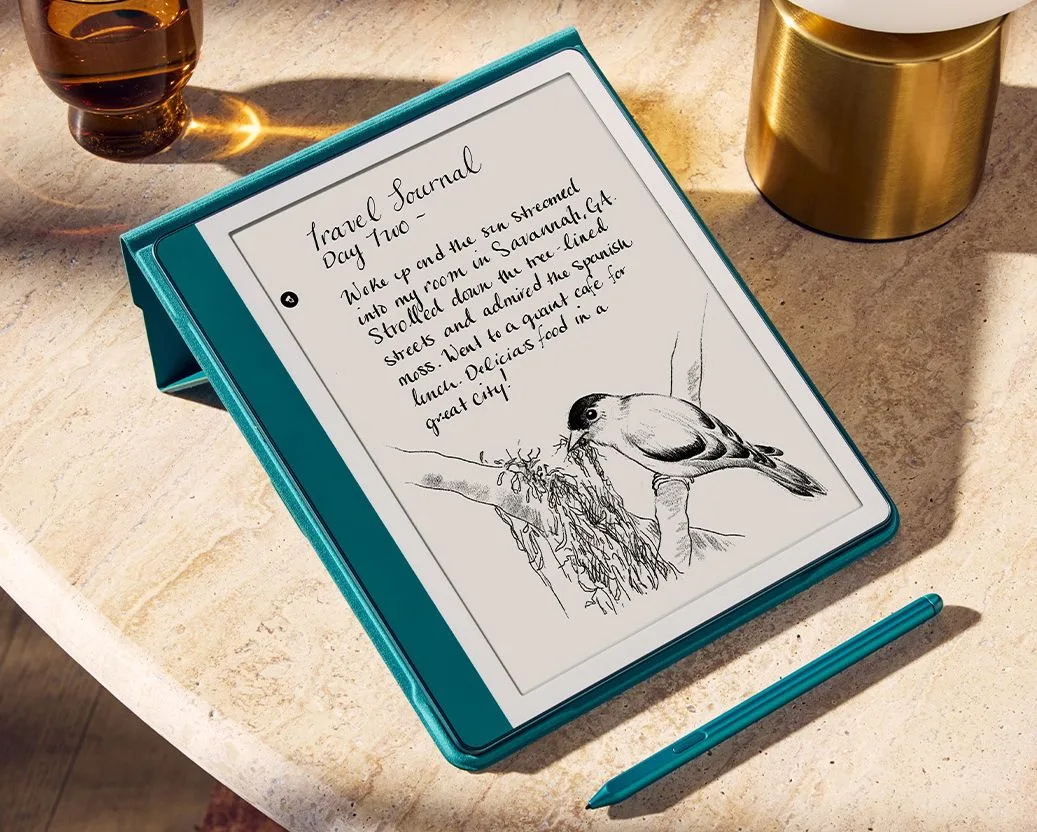 Travel Journal
Day Two ~
Woke up and the sun streamed
into my room in Savannah, GA.
Strolled down the tree-lined
streets and admired the Spanish
moss. Went to a quaint cafe for
lunch. Delicias food in a
great city!